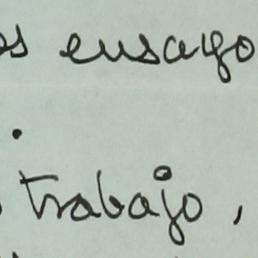 os ensayo
.
trabajo,